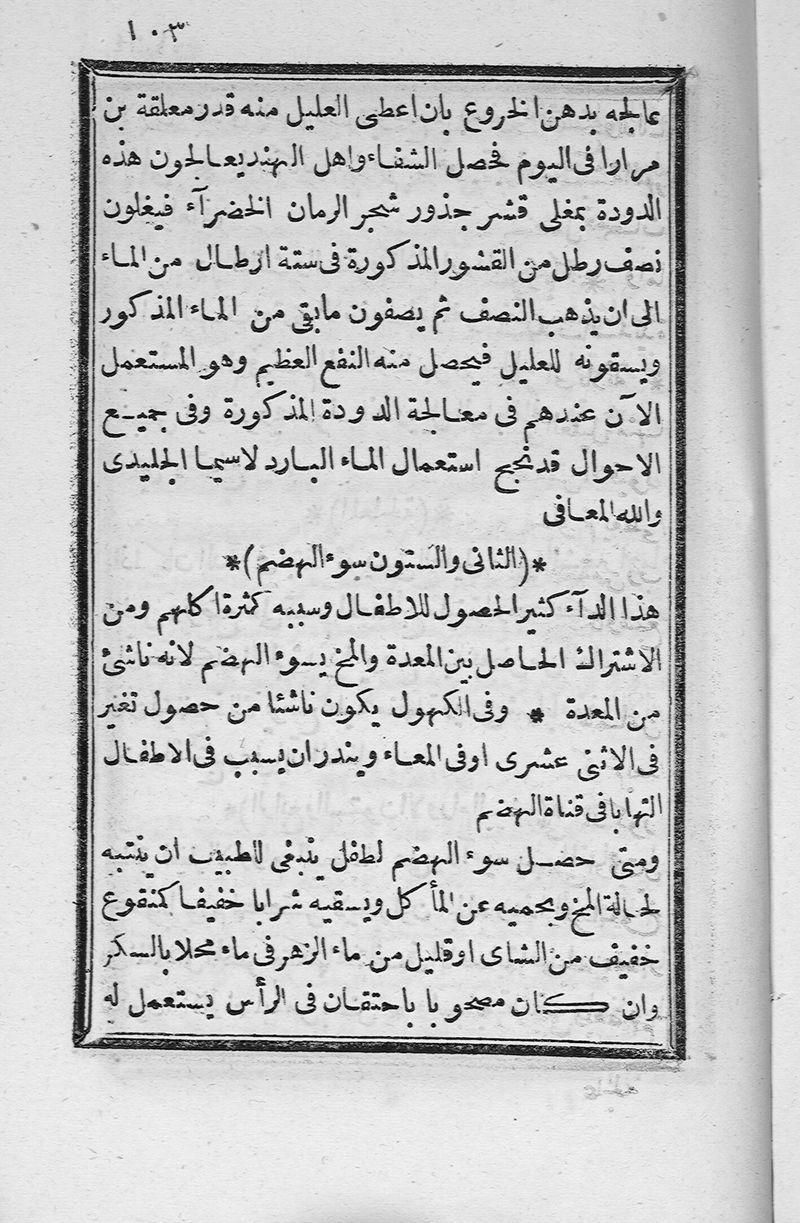 ١٠٣
عالجه بدهن الخروع بان اعطى العليل منه قدر معلقة بن
مرارا فى اليوم فحصل الشفاء واهل الهند يعالجون هذه
الدودة بمغلى قشر جذور شجر الرمان الخضرآء فيغلون
نصف رطل من القشور المذكورة فى ستة ارطال من الماء
الى ان يذهب النصف ثم يصفون مابقى من الماء المذكور
ويسقونه للعليل فيحصل منه النفع العظيم وهو المستعمل
الآن عندهم فى معالجة الدودة المذكورة وفى جميع
الاحوال قد نجح استعمال الماء البارد لاسيما الجليدى
والله المعافى
*(الثانى والستون سوء الهضم)*
هذا الدآء كثير الحصول للاطفال وسببه كثرة اكلهم ومن
الاشتراك الحاصل بين المعدة والمخ يسوء الهضم لانه ناشئ
من المعدة * وفى الكهول يكون ناشئا من حصول تغير
فى الاثنى عشرى اوفى المعاء ويندر ان يسبب فى الاطفال
التهابا فى قناة الهضم
ومتى حصل سوء الهضم لطفل ينبغى للطبيب ان ينتبه
لحالة المخ ويحميه عن المأكل ويسقيه شرابا خفيفا كمنقوع
خفيف من الشاى اوقليل من ماء الزهر فى ماء محلا بالسكر
وان كان مصحوبا باحتقان فى الرأس يستعمل له